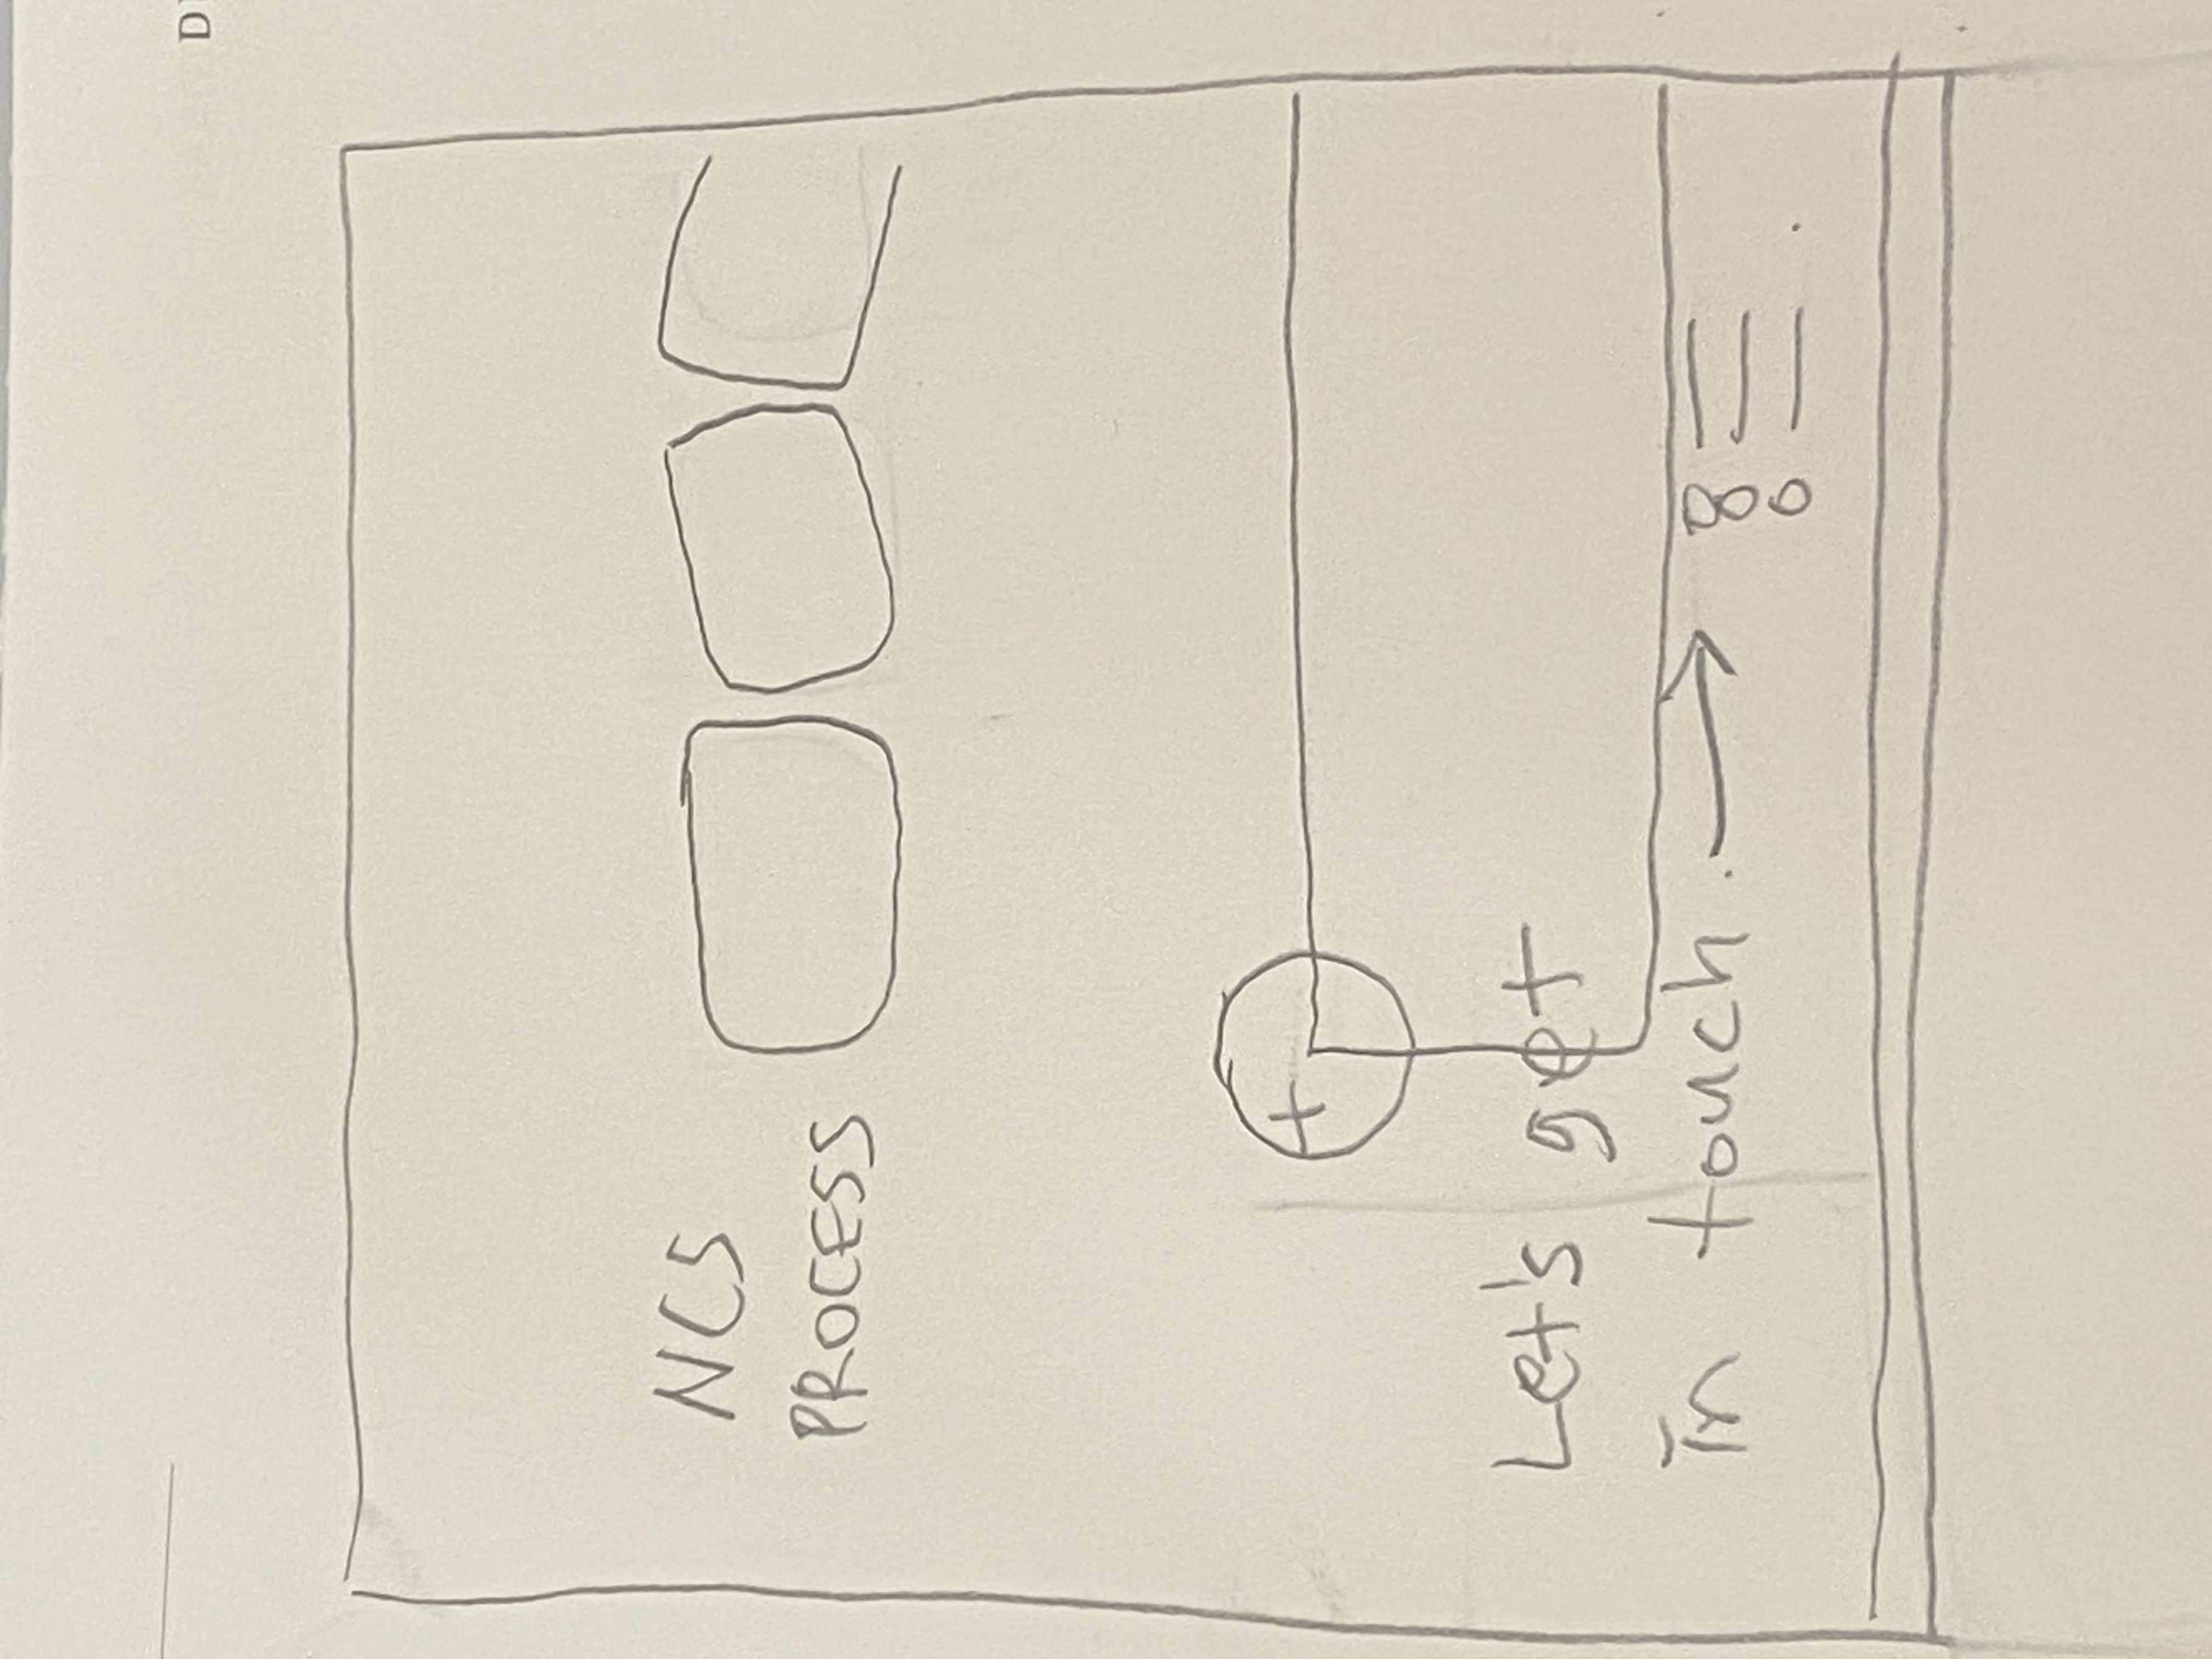 NCS
PROCESS
+
Let's get
in touch. →